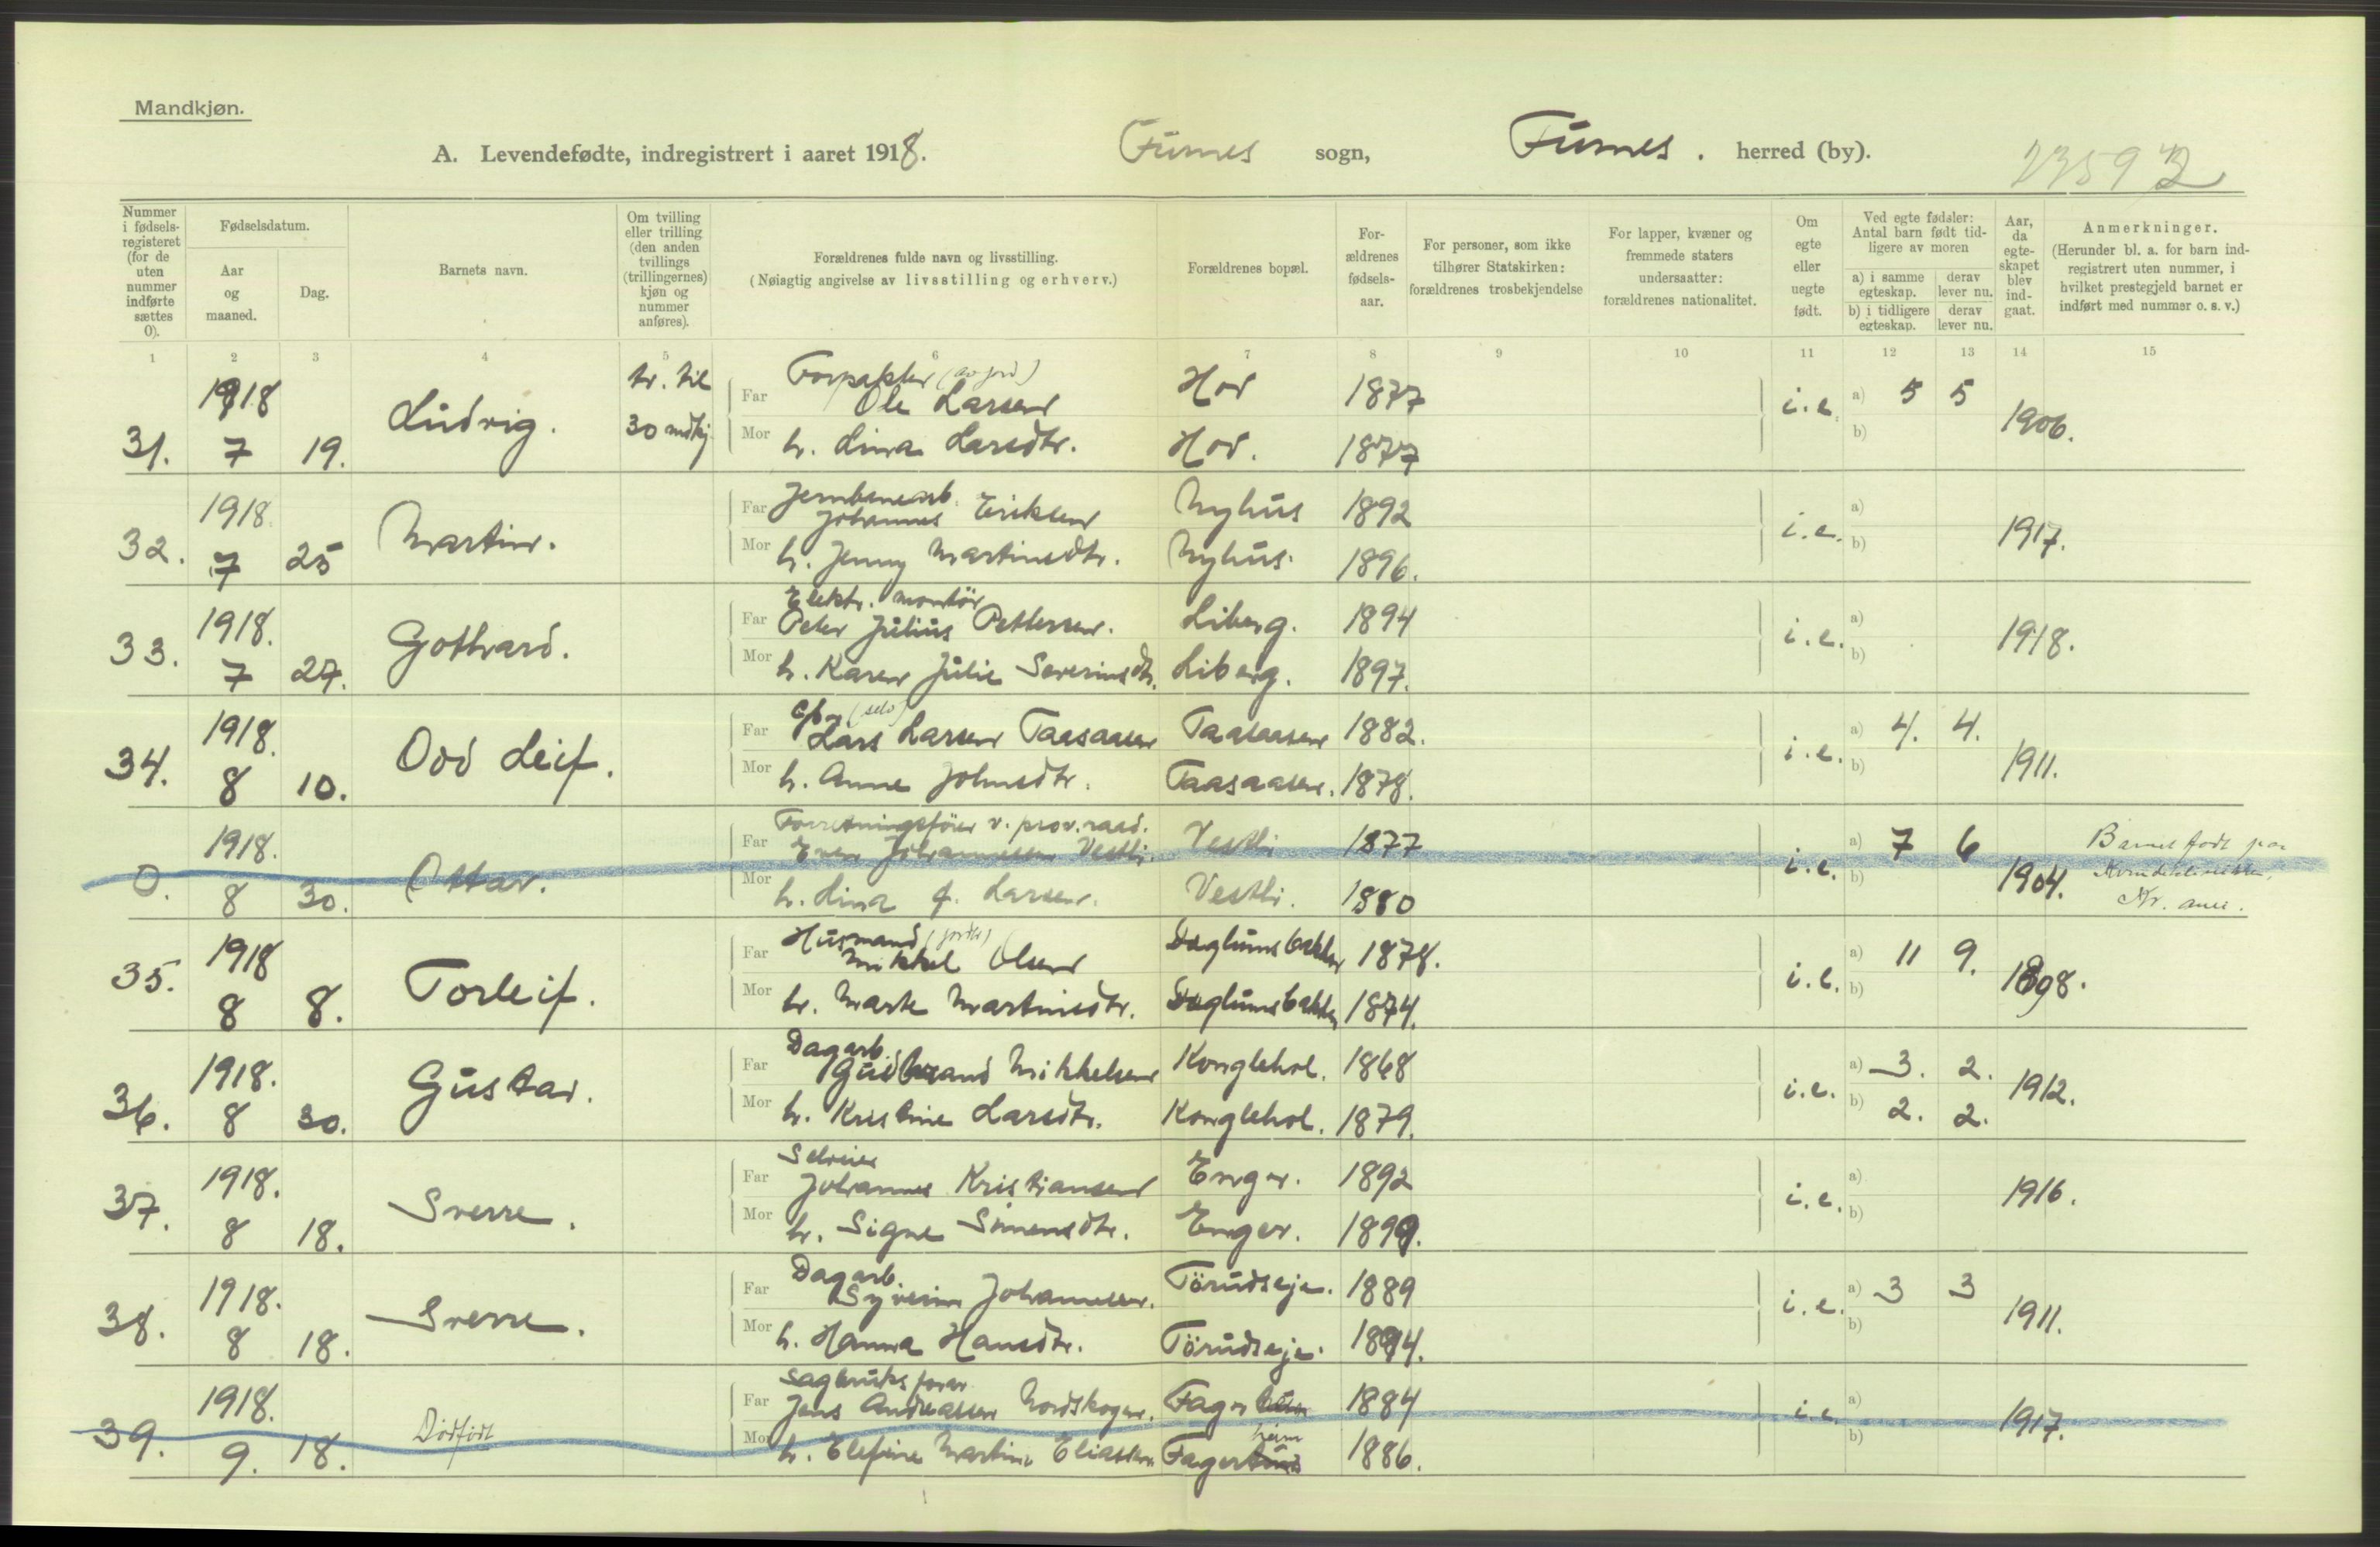 Mandkjøn.
A. Levendefødte, indregistrert i aaret 1918. Furnes sogn, Furnes. herred (by).
Nummer i fødselsregisteret (for de uten nummer indførte sættes 0).
Fødselsdatum.
Aar og maaned.
Dag.
Barnets navn.
Om tvilling eller trilling (den anden tvillings (trillingernes) kjøn og nummer anføres).
Forældrenes fulde navn og livsstilling.
(Nøiagtig angivelse av livsstilling og erhverv.)
Forældrenes bopæl.
Forældrenes fødselsaar.
For personer, som ikke tilhører Statskirken: forældrenes trosbekjendelse
For lapper, kvæner og fremmede staters undersaatter: forældrenes nationalitet.
Om egte eller uegte født.
Ved egte fødsler: Antal barn født tidligere av moren
a) i samme egteskap. derav lever nu.
b) i tidligere egteskap. derav lever nu.
Aar, da egteskapet blev indgaat.
Anmerkninger.
(Herunder bl. a. for barn indregistrert uten nummer, i hvilket prestegjeld barnet er indført med nummer o. s. v.)
1 2 3 4 5 6 7 8 9 10 11 12 13 14 15
31. 1918 7 19. Ludvig. tv. til 30 mdkj.
Far Forpakter (av jord) Ole Larsen Hov 1877 i.e. a) 5 5 1906.
Mor h. Lina Larsdtr. Hov. 1877 b)
32. 1918. 7 25 Martin.
Far Jernbanearb. Johannes Eriksen Nyhus 1892 i.e. a) 1917.
Mor h. Jenny Martinsdtr. Nyhus. 1896. b)
33. 1918. 7 27. Gothard.
Far Elektr. montör Peter Julius Pettersen. Liberg. 1894 i.e. a) 1918.
Mor h. Karen Julie Severinsdtr. Liberg. 1897. b)
34. 1918. 8 10. Odd Leif.
Far Gbr. (selv) Lars Larsen Taasaasen Taasaasen 1882. i.e. a) 4. 4. 1911.
Mor h. Anne Johnsdtr. Taasaasen. 1878. b)
0. 1918. 8 30. Ottar.
Far Forretningsförer v. prov.raad. Even Johannessen Vestli. Vestli 1877 i.e. a) 7 6 1904. Barnet født paa
Mor h. Lina J. Larsen. Vestli. 1880 b) Kvindeklinikken, Kr.
35. 1918 8 8. Torleif.
Far Husmand (jordbr) Mikkel Olsen Daglumsbakken 1878. i.e. a) 11 9. 1898.
Mor h. Marte Martinsdtr. Daglumsbakken 1874. b)
36. 1918. 8 30. Gustav.
Far Dagarb. Gudbrand Mikkelsen Konglehol. 1868 i.e. a) 3. 2. 1912.
Mor h. Kristine Larsdtr. Konglehol. 1879. b) 2. 2.
37. 1918. 8 18. Sverre.
Far Selveier Johannes Kristiansen Enger. 1892 i.e. a) 1916.
Mor h. Signe Simensdtr. Enger. 1899. b)
38. 1918. 8 18. Sverre.
Far Dagarb. Syverin Johannessen. Törudseje. 1889 i.e. a) 3 3 1911.
Mor h. Hanna Hansdtr. Törudseje. 1894. b)
39. 1918. 9. 18. Dödfödt
Far Jens Andreassen Nordskogen. 1884 i.e. a) 1917.
Mor h. Elefine Martine Eliassen Fagerheim 1886. b)